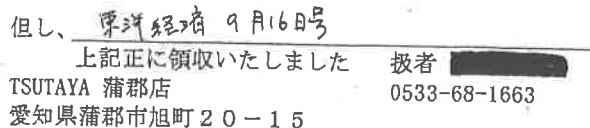 但し、東洋経済 9月16日号
上記正に領収いたしました 扱者
TSUTAYA 蒲郡店 0533-68-1663
愛知県蒲郡市旭町20-15